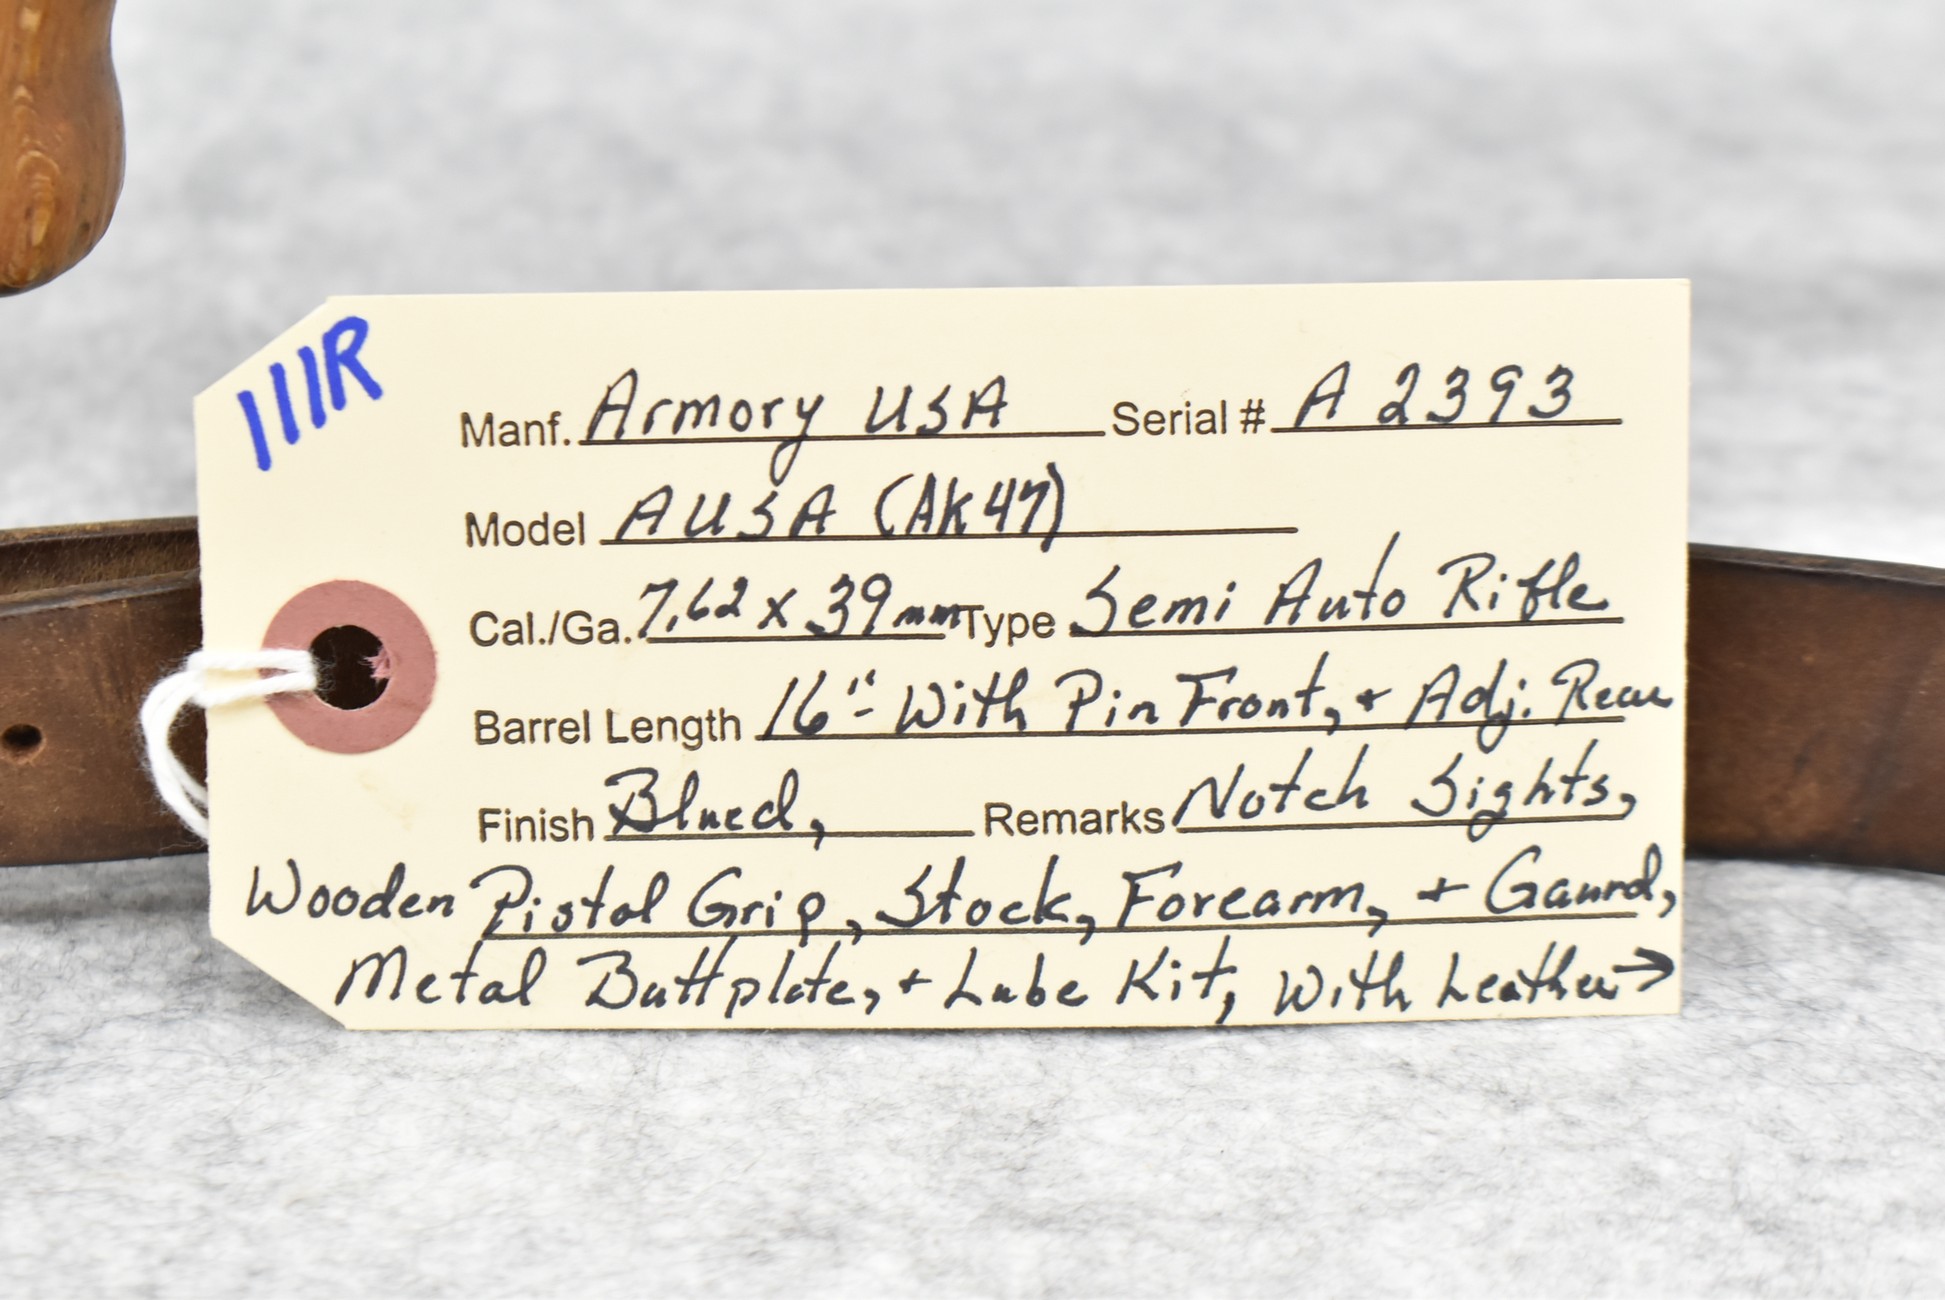 111R
Manf. Armory USA Serial # A 2393
Model AUSA (AK47)
Cal./Ga. 7.62 x 39mm Type Semi Auto Rifle
Barrel Length 16"- With Pin Front, + Adj. Rear
Finish Blued, Remarks Notch Sights,
Wooden Pistol Grip, Stock, Forearm, + Gaurd,
Metal Buttplate, + Lube Kit, With Leather →